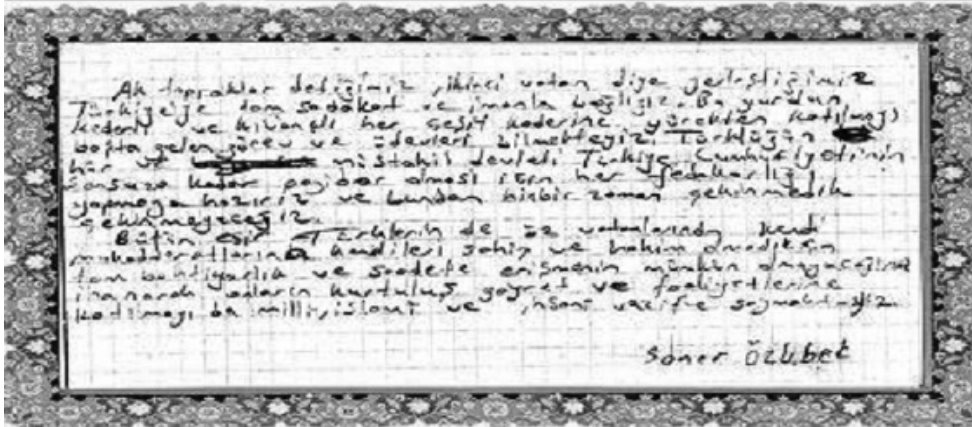 Ak topraklar dediğimiz, ikinci vatan diye yerleştiğimiz
Türkiye'ye tam sadakat ve imanla bağlıyız. Bu yurdun
kederli ve kıvançlı her çeşit kaderine yürekten katılmayı
başta gelen görev ve ödevleri bilmekteyiz. Türklüğün
hür ve müstakil devleti Türkiye Cumhuriyetinin
sonsuza kadar payidar olması için her fedakarlığı
yapmağa hazırız ve bundan hiçbir zaman çekinmedik
çekinmeyeceğiz.
Bütün esir Türklerin de öz vatanlarında kendi
mukadderatlarına kendileri sahip ve hakim olmadıkça
tam bahtiyarlık ve saadete erişmenin mümkün olmayacağına
inanarak onların kurtuluş gayret ve faaliyetlerine
katılmayı da milli, islami ve insani vazife saymaktayız
Soner Özübek